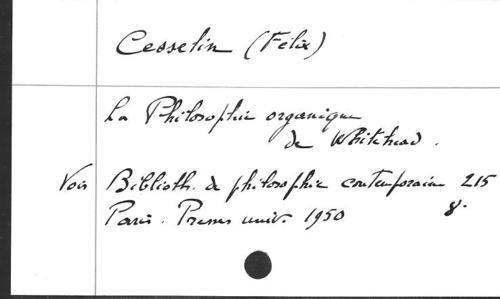 Cesselin (Félix)
La Philosophie organique
de Whitehead.
Voir Biblioth. de philosophie contemporaine 215
Paris. Presses univ. 1950 8°.